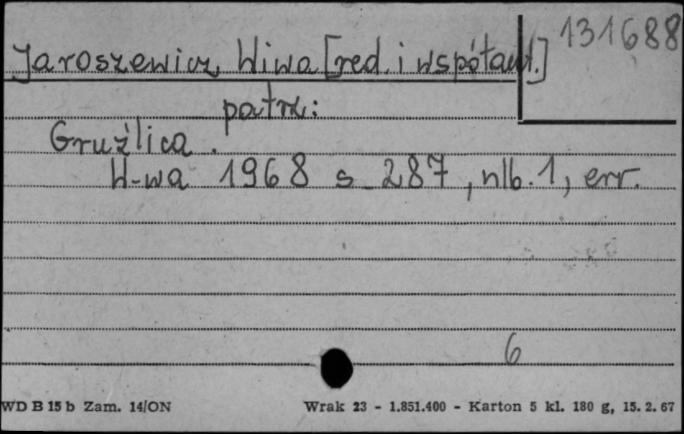 131688
Jaroszewicz Wiwa [red. i współaut.]
patrz:
Gruźlica.
W-wa 1968 s. 287, nlb. 1, err.
6
WD B 15 b Zam. 14/ON Wrak 23 - 1.851.400 - Karton 5 kl. 180 g, 15. 2. 67